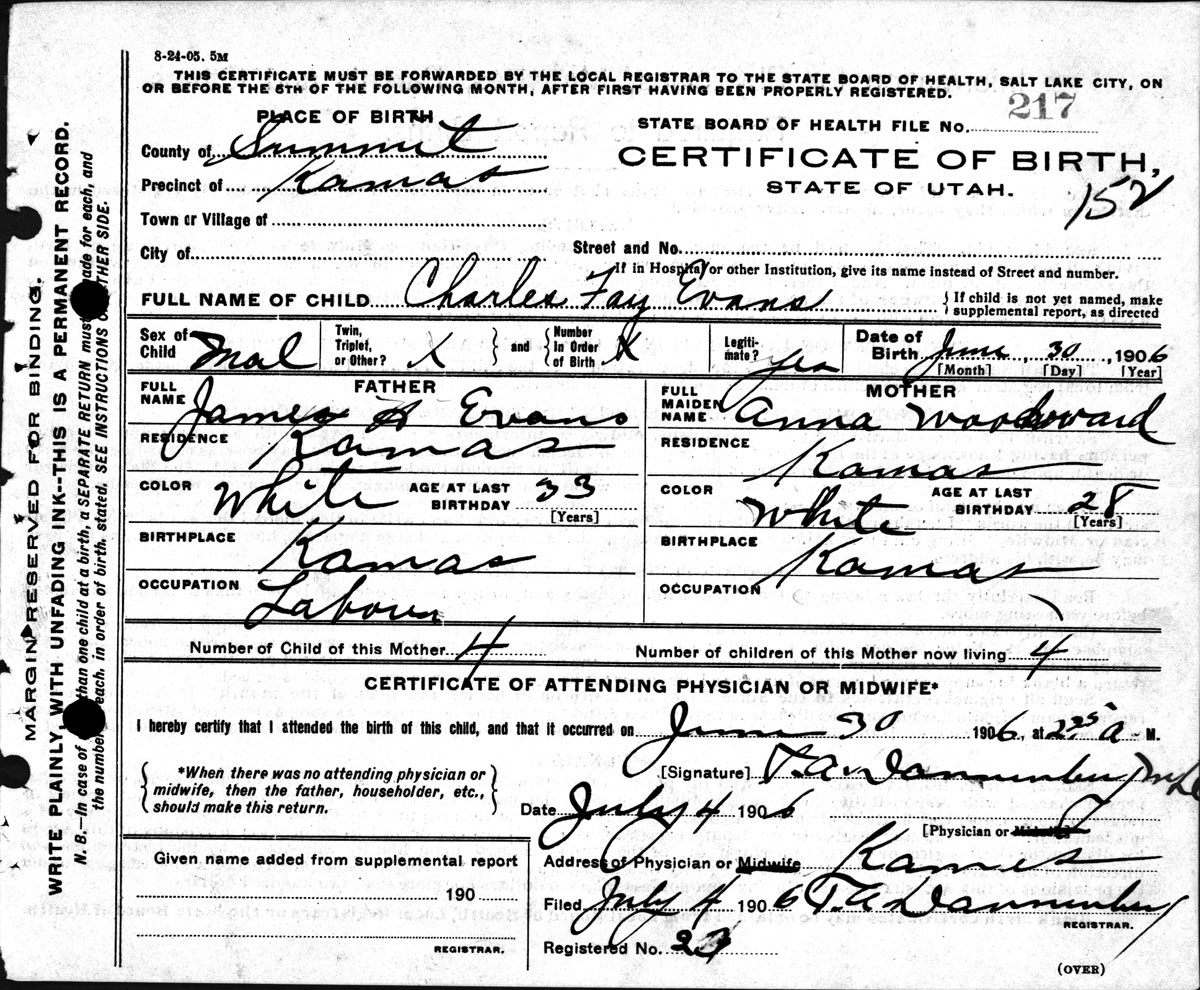 8-24-05. 5M
THIS CERTIFICATE MUST BE FORWARDED BY THE LOCAL REGISTRAR TO THE STATE BOARD OF HEALTH, SALT LAKE CITY, ON
OR BEFORE THE 5TH OF THE FOLLOWING MONTH, AFTER FIRST HAVING BEEN PROPERLY REGISTERED.
PLACE OF BIRTH
STATE BOARD OF HEALTH FILE No. 217
County of Summit
CERTIFICATE OF BIRTH,
Precinct of Kamas
STATE OF UTAH.
152
Town or Village of
City of Street and No.
If in Hospital or other Institution, give its name instead of Street and number.
FULL NAME OF CHILD Charles Fay Evans { If child is not yet named, make
supplemental report, as directed
Sex of Child Mal Twin, Triplet, or Other? X and Number In Order of Birth X Legiti-mate? yea Date of Birth June 30, 1906
[Month] [Day] [Year]
FATHER
FULL NAME James A Evans
RESIDENCE Kamas
COLOR White AGE AT LAST BIRTHDAY 33
[Years]
BIRTHPLACE Kamas
OCCUPATION Labour
MOTHER
FULL MAIDEN NAME Anna Woodward
RESIDENCE Kamas
COLOR White AGE AT LAST BIRTHDAY 28
[Years]
BIRTHPLACE Kamas
OCCUPATION
Number of Child of this Mother 4 Number of children of this Mother now living 4
CERTIFICATE OF ATTENDING PHYSICIAN OR MIDWIFE*
I hereby certify that I attended the birth of this child, and that it occurred on June 30 1906, at 2 25 A M.
*When there was no attending physician or
midwife, then the father, householder, etc.,
should make this return.
[Signature] T.A. Dannenberg
Date July 4 1906
[Physician or Midwife]
Address of Physician or Midwife Kamas
Filed July 4 1906 T.A. Dannenberg
REGISTRAR.
Registered No. 23
Given name added from supplemental report
190
REGISTRAR.
(OVER)
MARGIN RESERVED FOR BINDING.
WRITE PLAINLY, WITH UNFADING INK--THIS IS A PERMANENT RECORD.
N. B.—In case of than one child at a birth, a SEPARATE RETURN must ade for each, and
the number each, in order of birth, stated. SEE INSTRUCTIONS O THER SIDE.